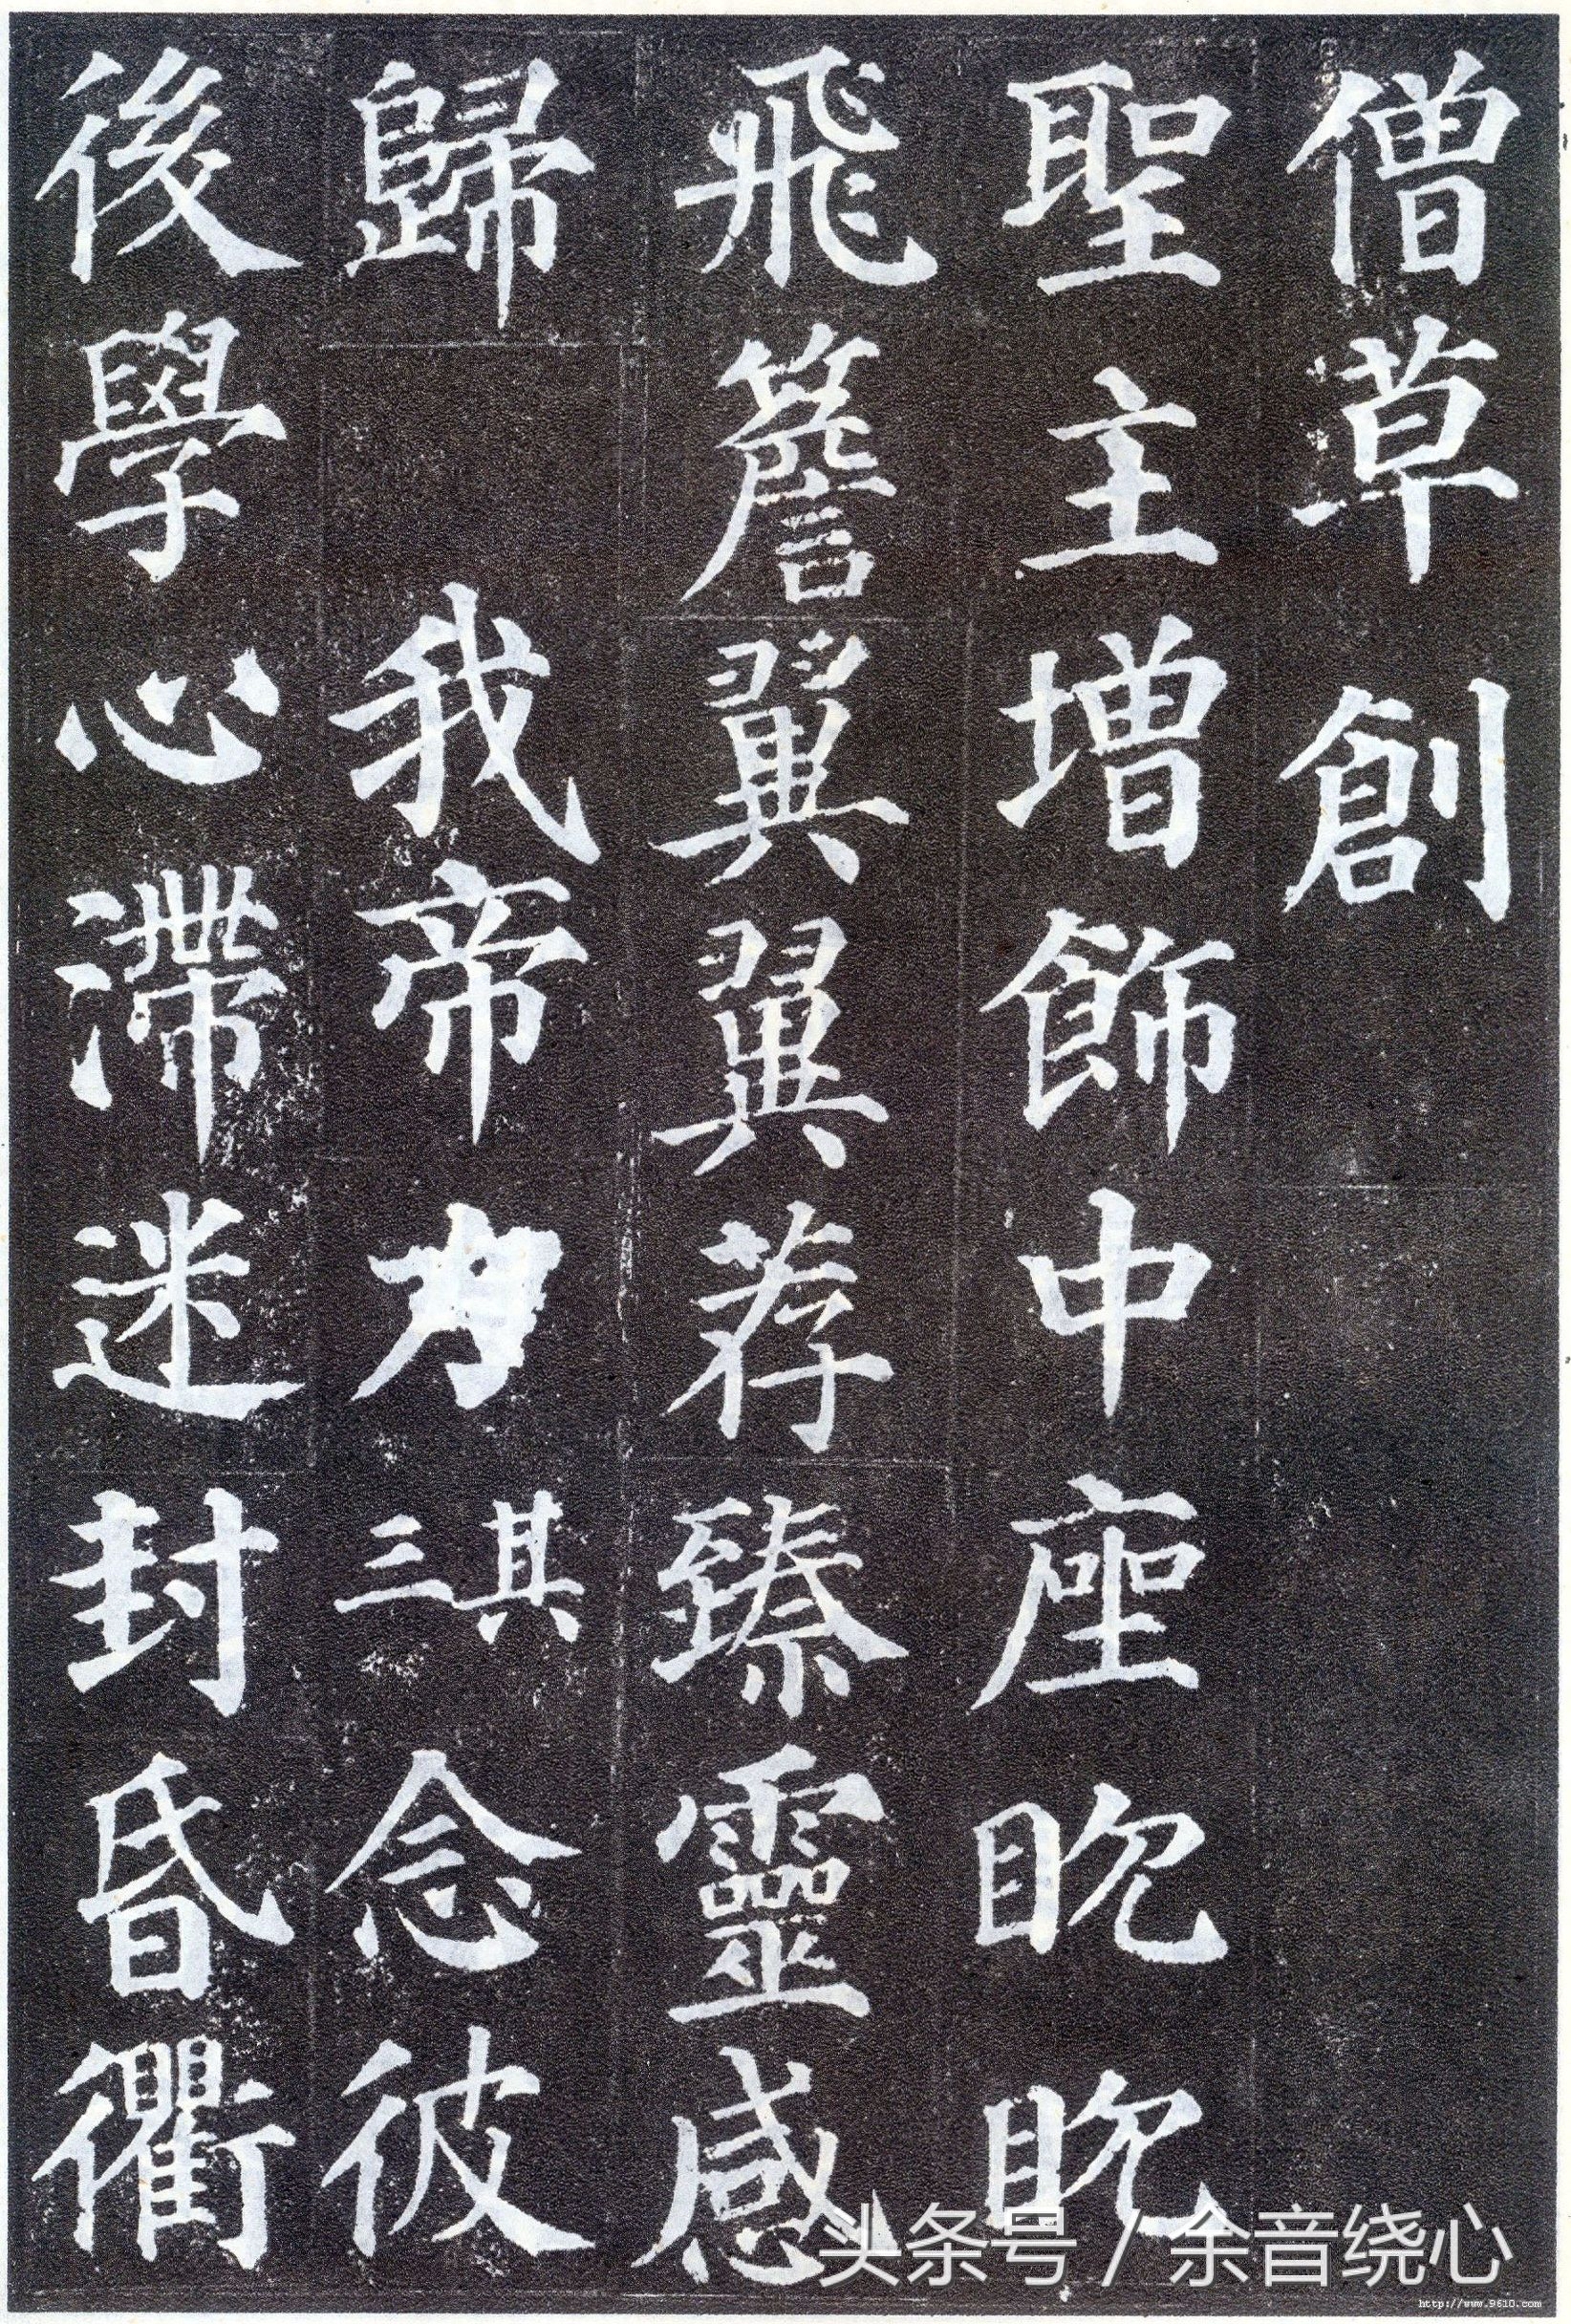 僧草創
聖主增飾中座眈眈
飛簷翼翼荐臻靈感
歸 我帝力其三念彼
後學心滯迷封昏衢
头条号 / 余音绕心
http://www.9610.com